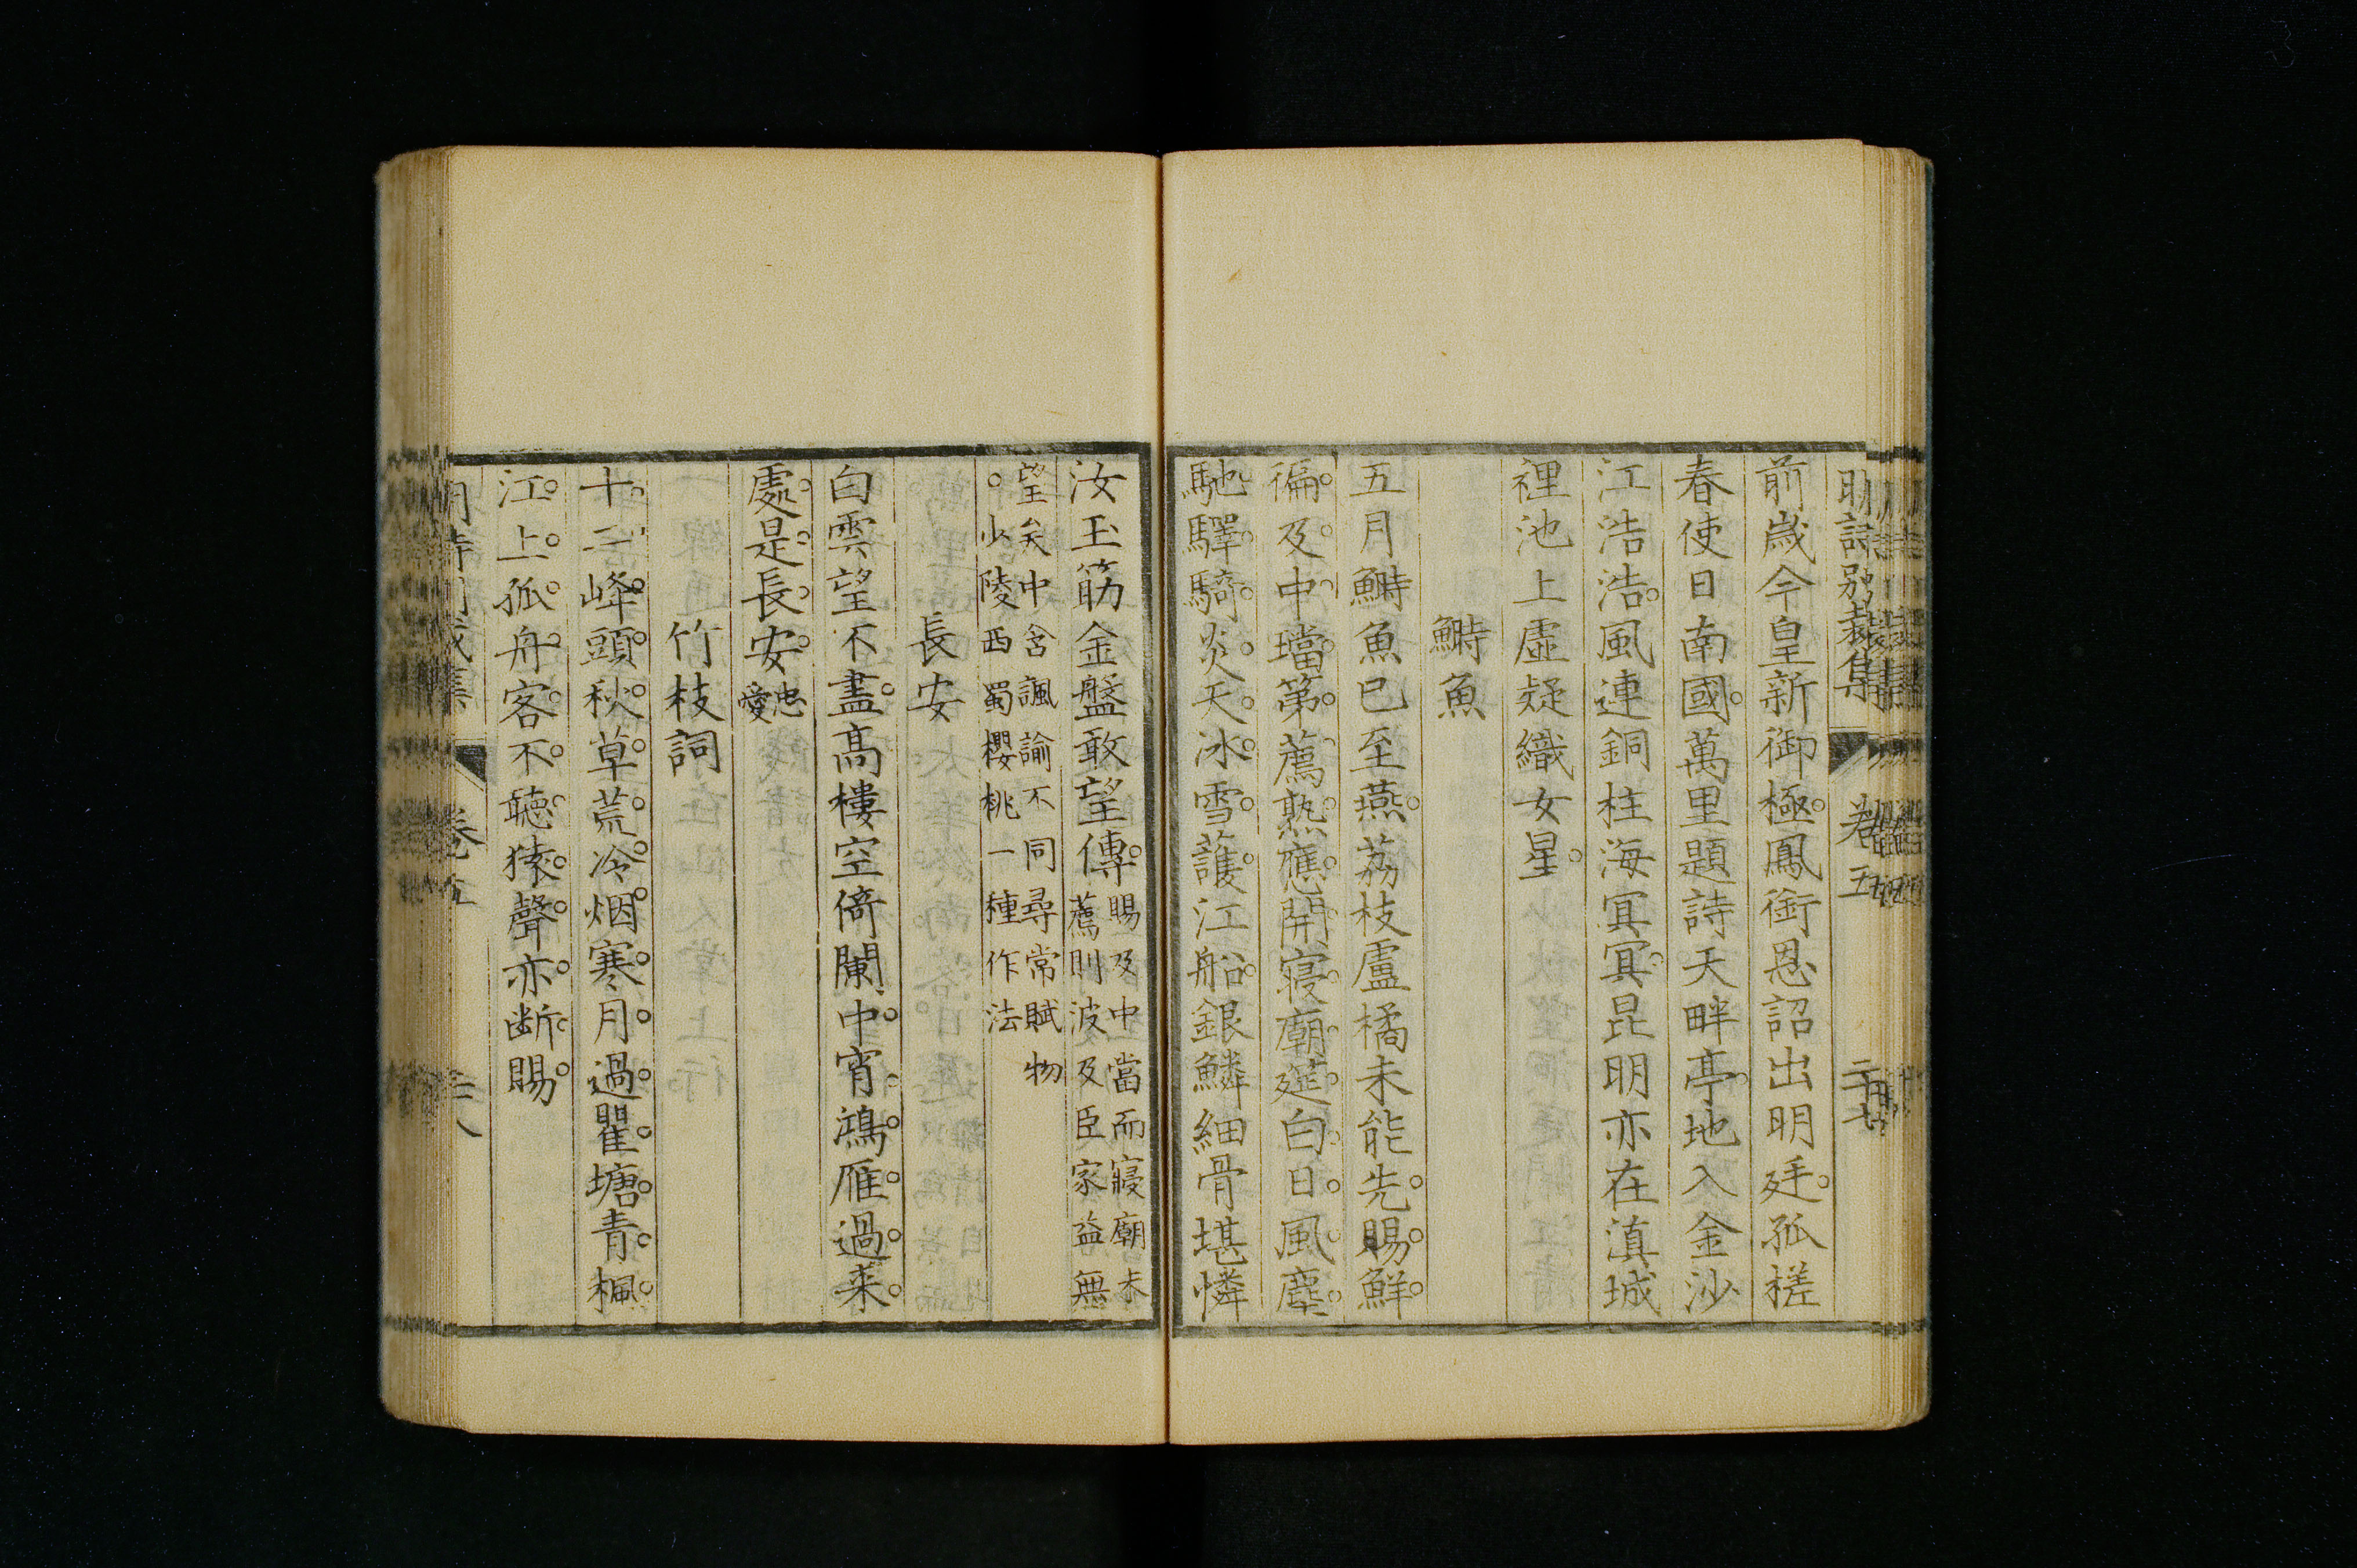 明詩別裁集 卷五 二十七
前歲今皇新御極鳳銜恩詔出明廷孤槎
春使日南國萬里題詩天畔亭地入金沙
江浩浩風連銅柱海冥冥昆明亦在滇城
裡池上虛疑織女星
鰣魚
五月鰣魚已至燕荔枝盧橘未能先賜鮮
徧及中璫第薦熟應開寢廟筵白日風塵
馳驛騎炎天冰雪護江船銀鱗細骨堪憐
汝玉筯金盤敢望傳賜及中當而寢廟未
薦則波及臣家益無
望矣中含諷諭不同尋常賦物
○少陵西蜀櫻桃一種作法
長安
白雲望不盡高樓空倚闌中宵鴻雁過來
處是長安忠愛
竹枝詞
十二峰頭秋草荒冷烟寒月過瞿塘青楓
江上孤舟客不聽猿聲亦斷腸